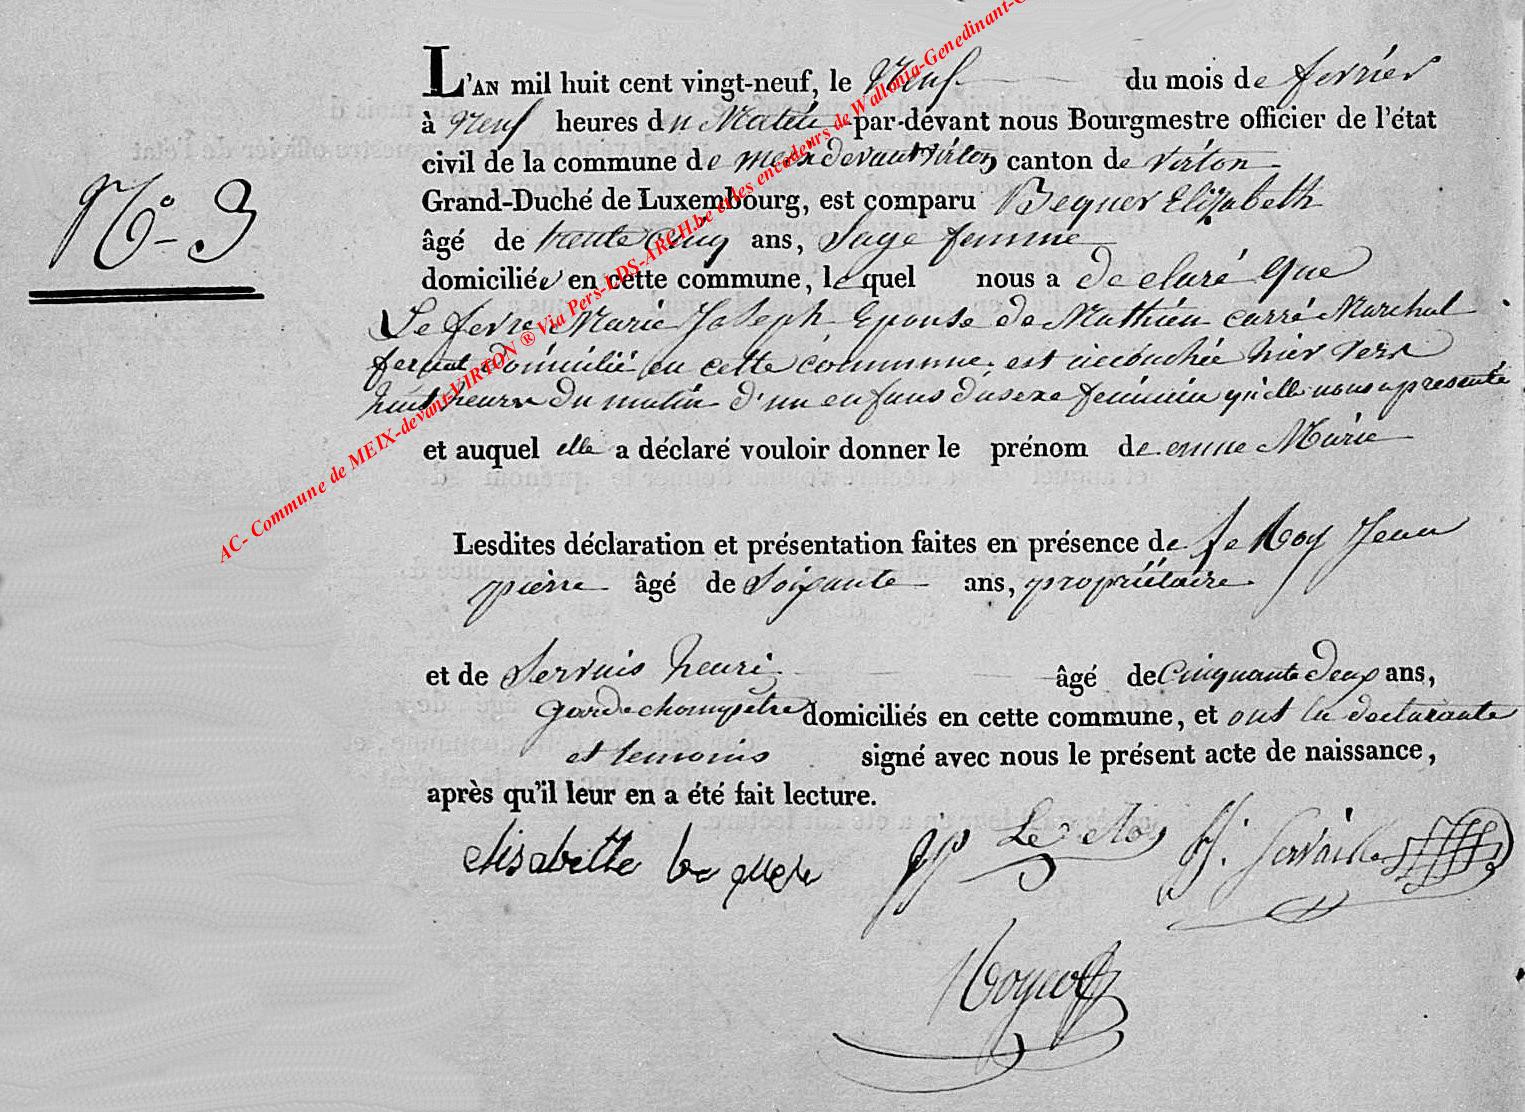 L'AN mil huit cent vingt-neuf, le Neuf du mois de fevrier
à Neuf heures du Matin par-devant nous Bourgmestre officier de l'état
civil de la commune de meix devant virton canton de virton
N° 3
Grand-Duché de Luxembourg, est comparu Bequer Elizabeth
âgé de trente cinq ans, Sage femme
domiciliée en cette commune, lequel nous a declaré que
Le fevre Marie Joseph Epouse de Mathieu carré Marchal
ferant domicilié en cette commune, est accouchée hier vers
huit heures du matin d'un enfans du sexe feminin qu'elle nous a presenté
et auquel elle a déclaré vouloir donner le prénom de Marie
Lesdites déclaration et présentation faites en présence de le Roy Jean
pierre âgé de Soixante ans, propriétaire
et de Servais henri âgé de Cinquante deux ans,
garde champetre domiciliés en cette commune, et ont la declarante
et temoins signé avec nous le présent acte de naissance,
après qu'il leur en a été fait lecture.
elisabette bequere JP Le Roy H. Servais
AC- Commune de MEIX-devant-VIRTON ® Via Pers-LDS-ARCH.be et les encodeurs de Wallonia-Genedinant-G